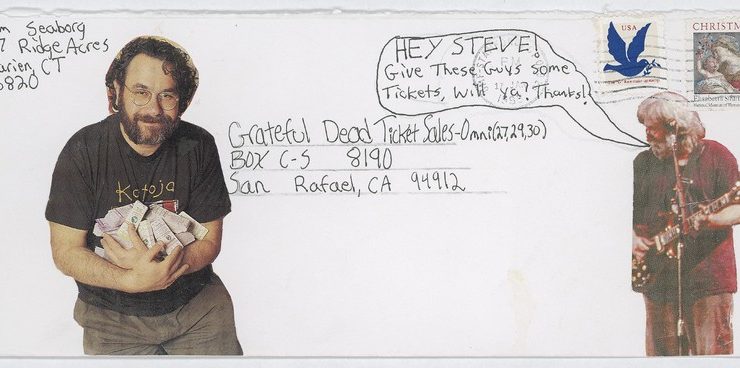 m Seaborg
7 Ridge Acres
arien, CT
6820
HEY STEVE!
Give These Guys Some
Tickets, Will Ya? Thanks!!
Grateful Dead Ticket Sales-Omni(27,29,30)
BOX C-S 8190
San Rafael, CA 94912
Ketoja
USA
CHRISTM